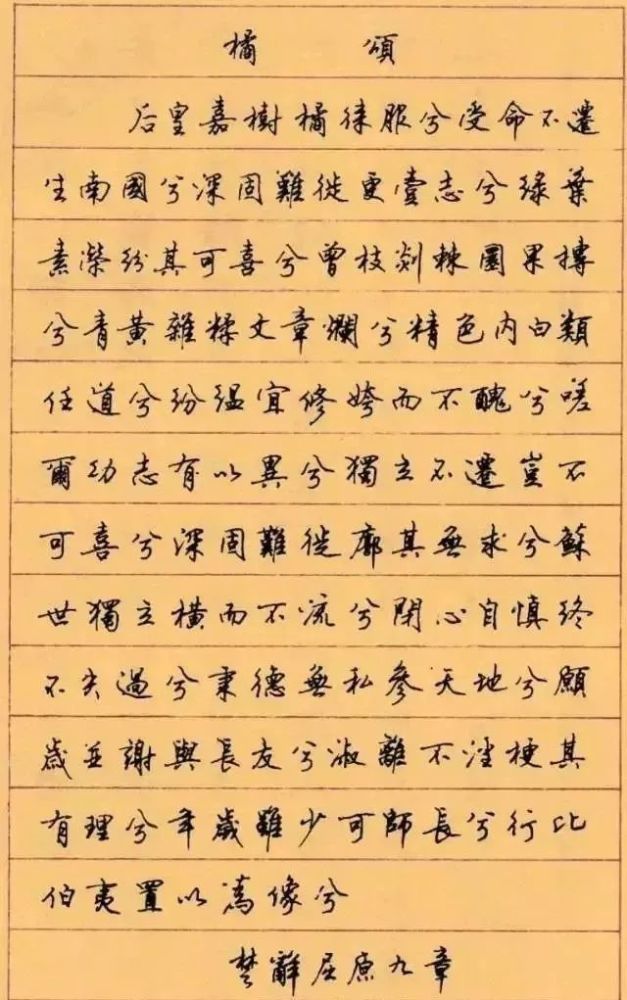 橘 頌
后皇嘉樹橘徕服兮受命不遷
生南國兮深固難徙更壹志兮綠葉
素榮紛其可喜兮曾枝剡棘圜果摶
兮青黃雜糅文章爛兮精色內白類
任道兮紛緼宜修姱而不醜兮嗟
爾幼志有以異兮獨立不遷豈不
可喜兮深固難徙廓其無求兮蘇
世獨立橫而不流兮閉心自慎終
不失過兮秉德無私參天地兮願
歲並謝與長友兮淑離不淫梗其
有理兮年歲雖少可師長兮行比
伯夷置以為像兮
楚辭屈原九章